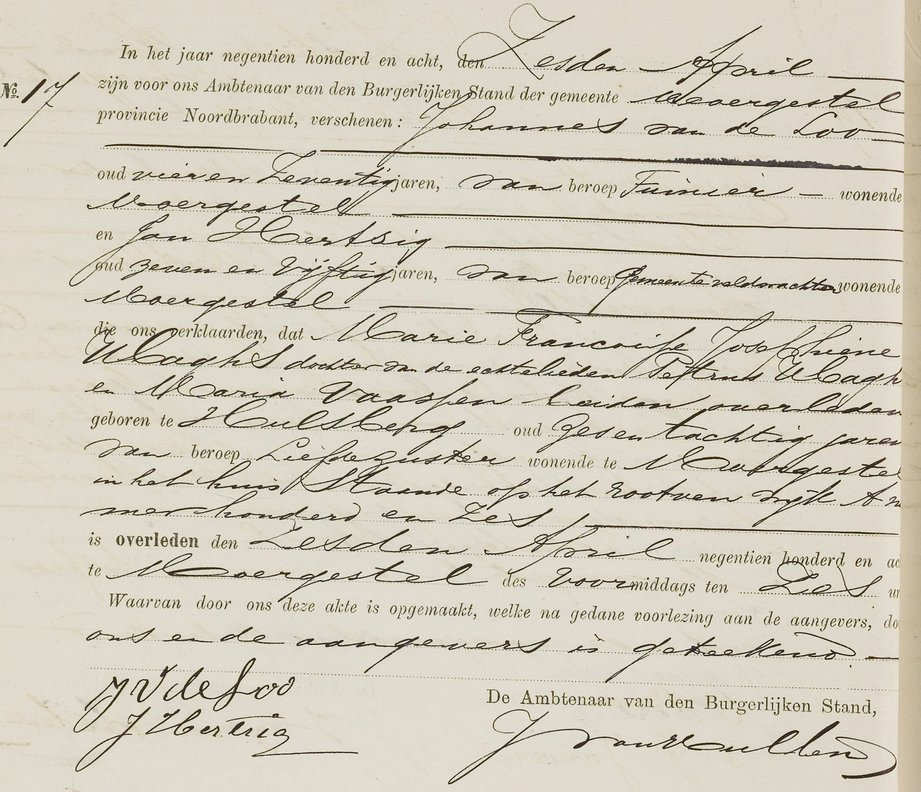 In het jaar negentien honderd en acht, den Zesden April
No. 17
zijn voor ons Ambtenaar van den Burgerlijken Stand der gemeente Moergestel
provincie Noordbrabant, verschenen: Johannes van de Loo
oud vier en Zeventig jaren, van beroep Tuinier wonende
Moergestel
en Jan Hertzig
oud zeven en Vijftig jaren, van beroep Gemeenteveldwachter wonende
Moergestel
die ons verklaarden, dat Marie Francoise Josephiene
dochter van de echtelieden Petrus
en Maria Vaassen beiden overleden
geboren te Hulsberg oud Zes en tachtig jaren
van beroep Liefdezuster wonende te Moergestel
in het huis Staande op het rootven wijk A
mer honderd en Zes
is overleden den Zesden April negentien honderd en ac
te Moergestel des Voormiddags ten Zes u
Waarvan door ons deze akte is opgemaakt, welke na gedane voorlezing aan de aangevers, do
ons en de aangevers is geteekend.
J V de Loo
De Ambtenaar van den Burgerlijken Stand,
J Hertzig